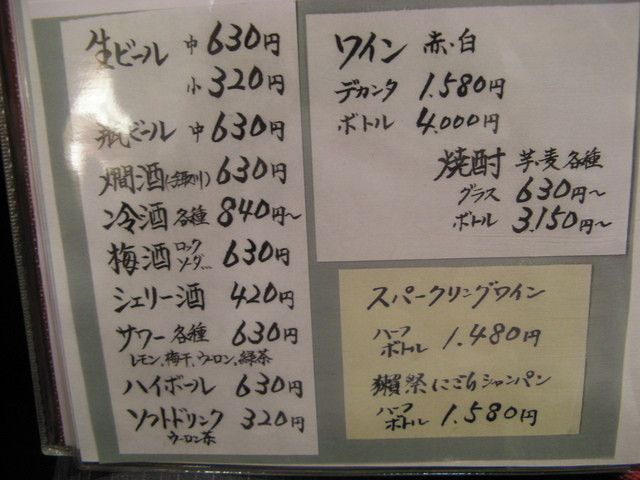 生ビール 中 630円
小 320円
瓶ビール 中 630円
燗酒 630円
冷酒 各種 840円~
梅酒 ロック ソーダ… 630円
シェリー酒 420円
サワー 各種 630円
レモン、梅干、ウーロン、緑茶
ハイボール 630円
ソフトドリンク 320円
ウーロン茶
ワイン 赤・白
デカンタ 1.580円
ボトル 4.000円
焼酎 芋・麦 各種
グラス 630円~
ボトル 3.150円~
スパークリングワイン
ハーフボトル 1.480円
獺祭 にごりシャンパン
ハーフボトル 1.580円